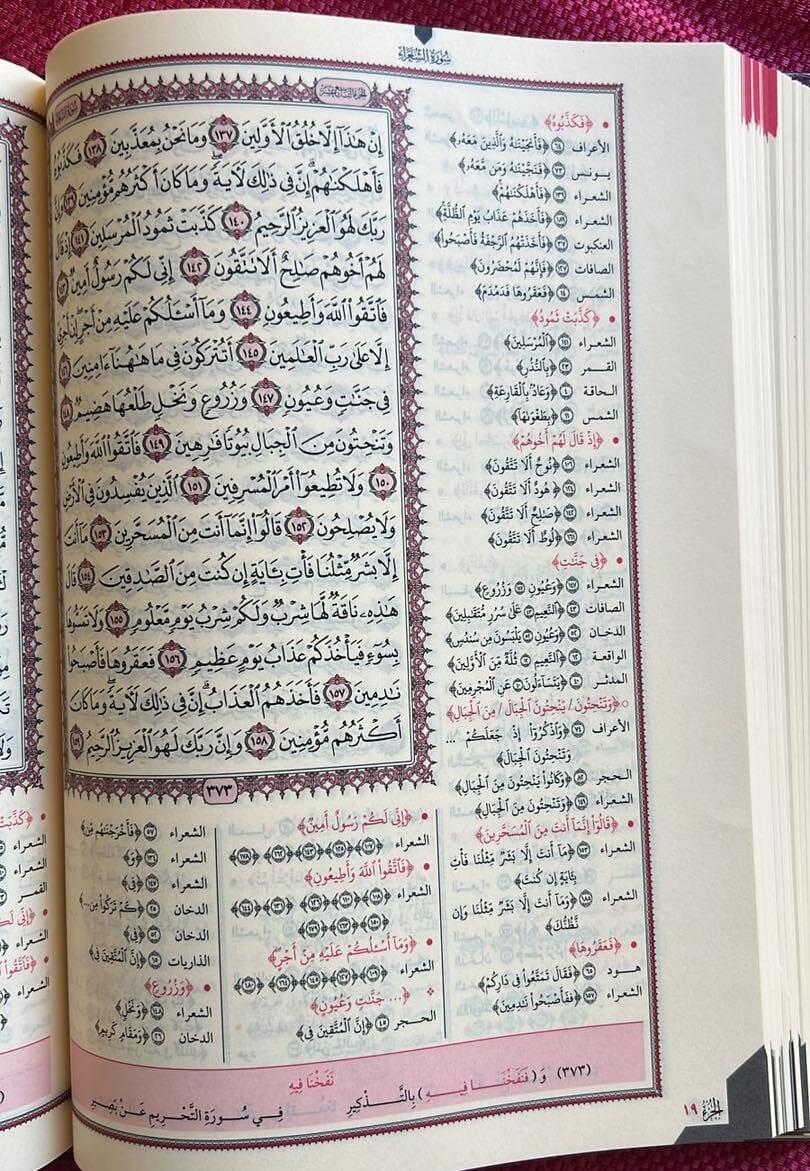 سُورَةُ الشُّعَرَاءِ
إِنْ هَٰذَآ إِلَّا خُلُقُ ٱلْأَوَّلِينَ ١٣٧ وَمَا نَحْنُ بِمُعَذَّبِينَ ١٣٨ فَكَذَّبُوهُ
فَأَهْلَكْنَٰهُمْ ۗ إِنَّ فِي ذَٰلِكَ لَأٓيَةً ۖ وَمَا كَانَ أَكْثَرُهُم مُّؤْمِنِينَ ١٣٩ وَإِنَّ
رَبَّكَ لَهُوَ ٱلْعَزِيزُ ٱلرَّحِيمُ ١٤٠ كَذَّبَتْ ثَمُودُ ٱلْمُرْسَلِينَ ١٤١ إِذْ قَالَ
لَهُمْ أَخُوهُمْ صَٰلِحٌ أَلَا تَتَّقُونَ ١٤٢ إِنِّي لَكُمْ رَسُولٌ أَمِينٌ ١٤٣
فَٱتَّقُوا۟ ٱللَّهَ وَأَطِيعُونِ ١٤٤ وَمَآ أَسْـَٔلُكُمْ عَلَيْهِ مِنْ أَجْرٍ ۖ إِنْ أَجْرِيَ
إِلَّا عَلَىٰ رَبِّ ٱلْعَٰلَمِينَ ١٤٥ أَتُتْرَكُونَ فِي مَا هَٰهُنَآ ءَامِنِينَ ١٤٦
فِي جَنَّٰتٍ وَعُيُونٍ ١٤٧ وَزُرُوعٍ وَنَخْلٍ طَلْعُهَا هَضِيمٌ ١٤٨
وَتَنْحِتُونَ مِنَ ٱلْجِبَالِ بُيُوتًا فَٰرِهِينَ ١٤٩ فَٱتَّقُوا۟ ٱللَّهَ وَأَطِيعُونِ
١٥٠ وَلَا تُطِيعُوٓا۟ أَمْرَ ٱلْمُسْرِفِينَ ١٥١ ٱلَّذِينَ يُفْسِدُونَ فِي ٱلْأَرْضِ
وَلَا يُصْلِحُونَ ١٥٢ قَالُوٓا۟ إِنَّمَآ أَنتَ مِنَ ٱلْمُسَحَّرِينَ ١٥٣ مَآ أَنتَ
إِلَّا بَشَرٌ مِّثْلُنَا فَأْتِ بِـَٔايَةٍ إِن كُنتَ مِنَ ٱلصَّٰدِقِينَ ١٥٤ قَالَ
هَٰذِهِۦ نَاقَةٌ لَّهَا شِرْبٌ وَلَكُمْ شِرْبُ يَوْمٍ مَّعْلُومٍ ١٥٥ وَلَا تَمَسُّوهَا
بِسُوٓءٍ فَيَأْخُذَكُمْ عَذَابُ يَوْمٍ عَظِيمٍ ١٥٦ فَعَقَرُوهَا فَأَصْبَحُوا۟
نَٰدِمِينَ ١٥٧ فَأَخَذَهُمُ ٱلْعَذَابُ ۗ إِنَّ فِي ذَٰلِكَ لَأٓيَةً ۖ وَمَا كَانَ
أَكْثَرُهُم مُّؤْمِنِينَ ١٥٨ وَإِنَّ رَبَّكَ لَهُوَ ٱلْعَزِيزُ ٱلرَّحِيمُ ١٥٩
٣٧٣
﴿فَكَذَّبُوهُ﴾
الأعراف ٦٤ ﴿فَأَنجَيْنَٰهُ وَٱلَّذِينَ مَعَهُۥ﴾
يونس ٧٣ ﴿فَنَجَّيْنَٰهُ وَمَن مَّعَهُۥ﴾
الشعراء ١٣٩ ﴿فَأَهْلَكْنَٰهُمْ﴾
الشعراء ١٨٩ ﴿فَأَخَذَهُمْ عَذَابُ يَوْمِ ٱلظُّلَّةِ﴾
العنكبوت ٣٧ ﴿فَأَخَذَتْهُمُ ٱلرَّجْفَةُ فَأَصْبَحُوا۟﴾
الصافات ١٢٧ ﴿فَإِنَّهُمْ لَمُحْضَرُونَ﴾
الشمس ١٤ ﴿فَعَقَرُوهَا فَدَمْدَمَ﴾
﴿كَذَّبَتْ ثَمُودُ﴾
الشعراء ١٤١ ﴿ٱلْمُرْسَلِينَ﴾
القمر ٢٣ ﴿بِٱلنُّذُرِ﴾
الحاقة ٤ ﴿وَعَادٌۢ بِٱلْقَارِعَةِ﴾
الشمس ١١ ﴿بِطَغْوَىٰهَآ﴾
﴿إِذْ قَالَ لَهُمْ أَخُوهُمْ﴾
الشعراء ١٠٦ ﴿نُوحٌ أَلَا تَتَّقُونَ﴾
الشعراء ١٢٤ ﴿هُودٌ أَلَا تَتَّقُونَ﴾
الشعراء ١٤٢ ﴿صَٰلِحٌ أَلَا تَتَّقُونَ﴾
الشعراء ١٦١ ﴿لُوطٌ أَلَا تَتَّقُونَ﴾
﴿فِي جَنَّٰتِ﴾
الشعراء ١٤٧ ﴿وَعُيُونٍ ١٤٧ وَزُرُوعٍ﴾
الصافات ٤٣ ﴿ٱلنَّعِيمِ ٤٣ عَلَىٰ سُرُرٍ مُّتَقَٰبِلِينَ﴾
الدخان ٥٢ ﴿وَعُيُونٍ ٥٢ يَلْبَسُونَ مِن سُندُسٍ﴾
الواقعة ١٢ ﴿ٱلنَّعِيمِ ١٢ ثُلَّةٌ مِّنَ ٱلْأَوَّلِينَ﴾
المدثر ٤٠ ﴿يَتَسَآءَلُونَ ٤٠ عَنِ ٱلْمُجْرِمِينَ﴾
﴿وَتَنْحِتُونَ / يَنْحِتُونَ ٱلْجِبَالَ / مِنَ ٱلْجِبَالِ﴾
الأعراف ٧٤ ﴿وَٱذْكُرُوٓا۟ إِذْ جَعَلَكُمْ ...
وَتَنْحِتُونَ ٱلْجِبَالَ﴾
الحجر ٨٢ ﴿وَكَانُوا۟ يَنْحِتُونَ مِنَ ٱلْجِبَالِ﴾
الشعراء ١٤٩ ﴿وَتَنْحِتُونَ مِنَ ٱلْجِبَالِ﴾
﴿قَالُوٓا۟ إِنَّمَآ أَنتَ مِنَ ٱلْمُسَحَّرِينَ﴾
الشعراء ١٥٣ ﴿مَآ أَنتَ إِلَّا بَشَرٌ مِّثْلُنَا فَأْتِ
بِـَٔايَةٍ إِن كُنتَ﴾
الشعراء ١٨٥ ﴿وَمَآ أَنتَ إِلَّا بَشَرٌ مِّثْلُنَا وَإِن
نَّظُنُّكَ﴾
﴿فَعَقَرُوهَا﴾
هود ٦٥ ﴿فَقَالَ تَمَتَّعُوا۟ فِي دَارِكُمْ﴾
الشعراء ١٥٧ ﴿فَأَصْبَحُوا۟ نَٰدِمِينَ﴾
﴿إِنِّي لَكُمْ رَسُولٌ أَمِينٌ﴾
الشعراء ﴿١٠٧﴾ ﴿١٢٥﴾ ﴿١٤٣﴾ ﴿١٦٢﴾ ﴿١٧٨﴾
﴿فَٱتَّقُوا۟ ٱللَّهَ وَأَطِيعُونِ﴾
الشعراء ﴿١٠٨﴾ ﴿١١٠﴾ ﴿١٢٦﴾ ﴿١٣١﴾ ﴿١٤٤﴾
﴿١٥٠﴾ ﴿١٦٣﴾ ﴿١٧٩﴾
﴿وَمَآ أَسْـَٔلُكُمْ عَلَيْهِ مِنْ أَجْرٍ﴾
الشعراء ﴿١٠٩﴾ ﴿١٢٧﴾ ﴿١٤٥﴾ ﴿١٦٤﴾ ﴿١٨٠﴾
﴿... جَنَّٰتٍ وَعُيُونٍ﴾
الحجر ٤٥ ﴿إِنَّ ٱلْمُتَّقِينَ فِي﴾
الشعراء ٥٧ ﴿فَأَخْرَجْنَٰهُم مِّن﴾
الشعراء ١٣٤ ﴿وَ﴾
الشعراء ١٤٧ ﴿فِي﴾
الدخان ٢٥ ﴿كَمْ تَرَكُوا۟ مِن...﴾
الدخان ٥٢ ﴿فِي﴾
الذاريات ١٥ ﴿إِنَّ ٱلْمُتَّقِينَ فِي﴾
﴿وَزُرُوعٍ﴾
الشعراء ١٤٨ ﴿وَنَخْلٍ﴾
الدخان ٢٦ ﴿وَمَقَامٍ كَرِيمٍ﴾
(٣٧٣) وَ(فَنَفَخْنَا فِيهِ) بِالتَّذْكِيرِ
نَفَخْنَا فِيهِ
فِي سُورَةِ التَّحْرِيمِ عَنْ بَصِيرِ
الجزء ١٩